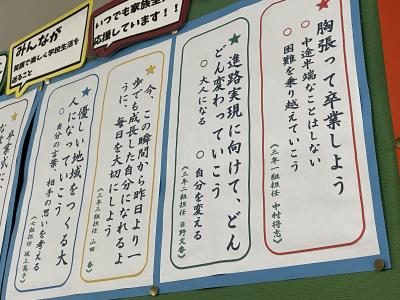 みんなが
笑顔で楽しく学校生活を
送ること
いつでも家族全
応援しています!!
胸張って卒業しよう
○ 中途半端なことはしない
○ 困難を乗り越えていこう
(三年一組担任 中村将志)
進路実現に向けて、どん
どん変わっていこう
○ 大人になる ○ 自分を変える
(三年二組担任 日野文香)
今、この瞬間から昨日より一
歩でも成長した自分になれるよ
うに、毎日を大切にしよう
(三年三組担任 山田 春)
優しい地域をつくる大
人になっていこう
○ 自分の言葉 相手の思いを考える
(七組担任 坂上高子)
卒業式に、